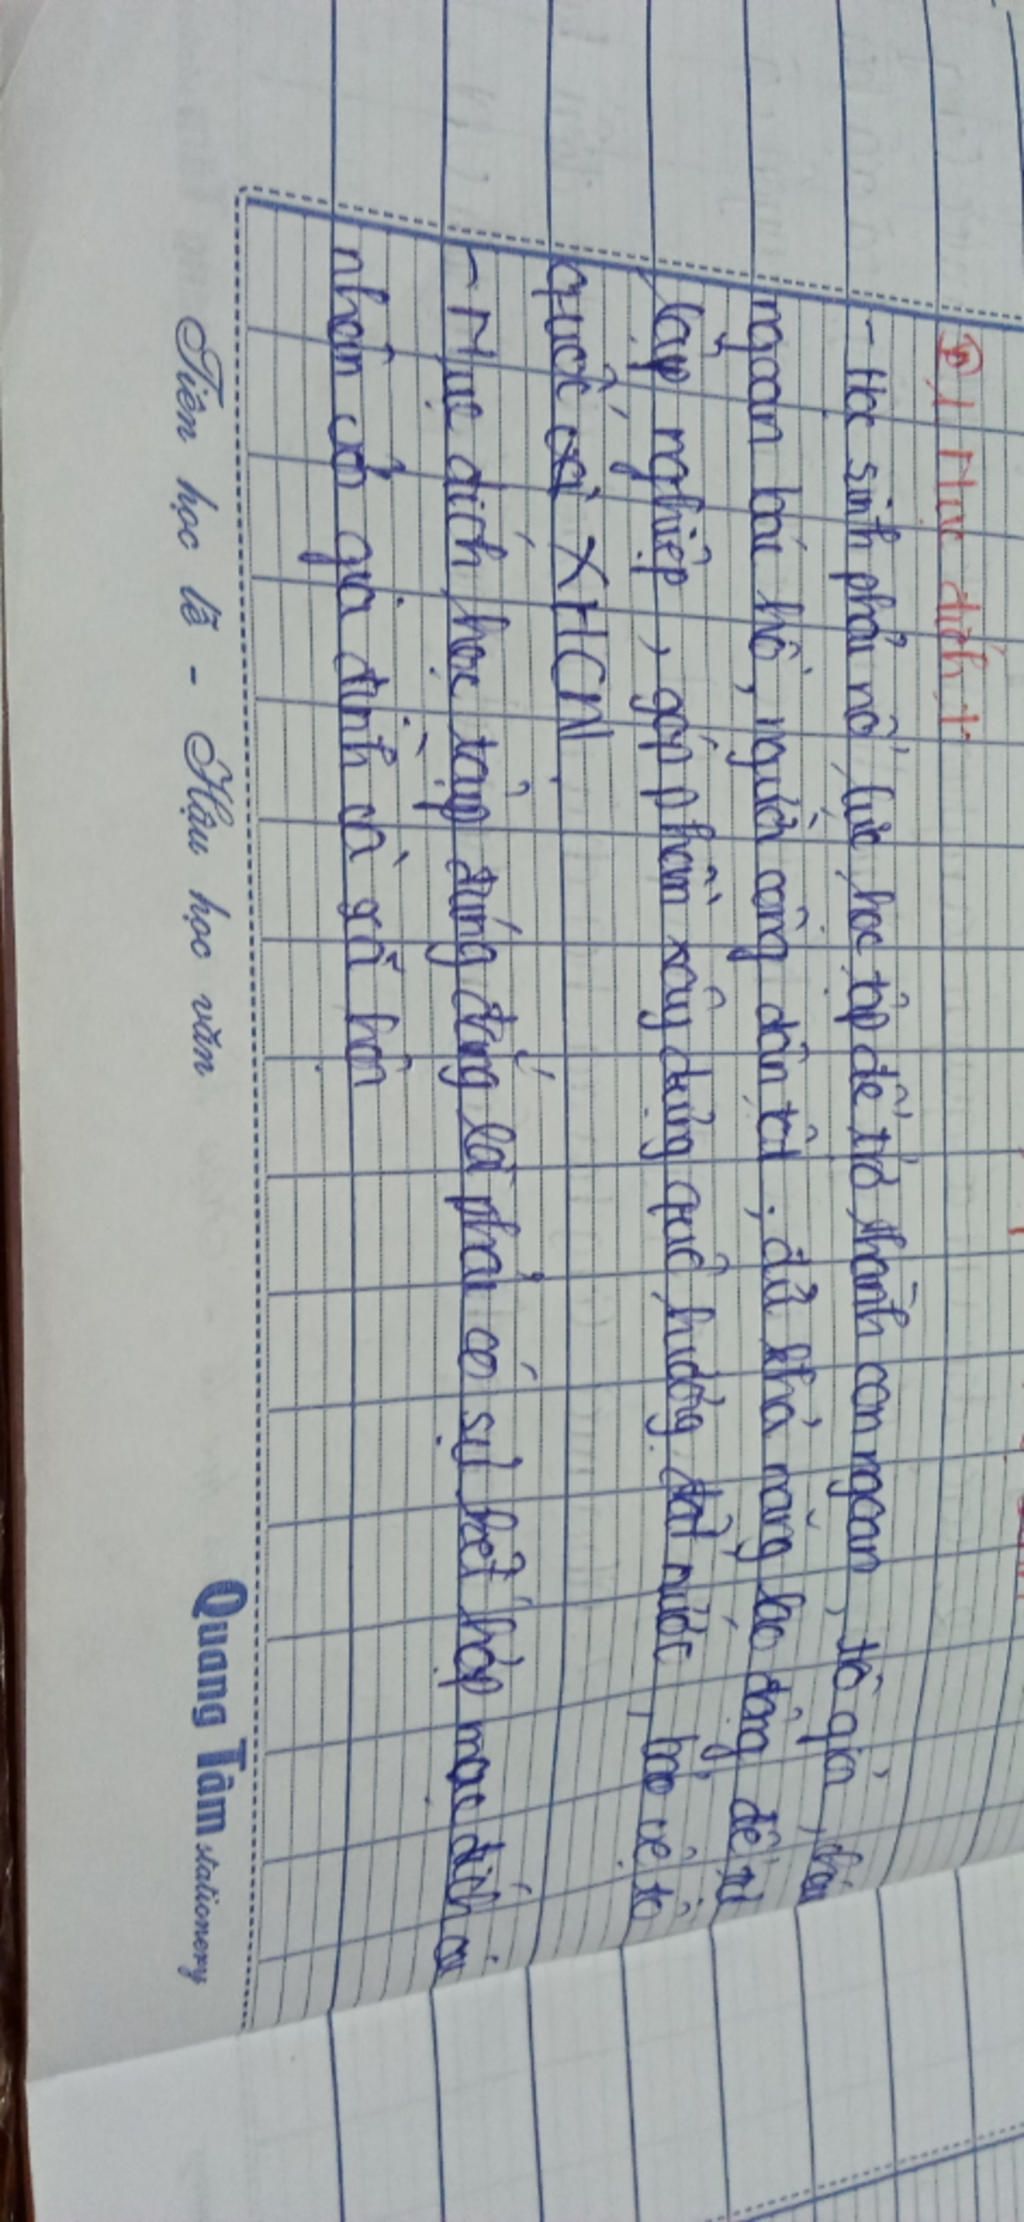 2, Mục đích :
- Học sinh phải nỗ lực học tập để trở thành con ngoan, trò giỏi, cháu
ngoan bác hồ, người công dân tốt ; đủ khả năng lao động để tự
lập nghiệp, góp phần xây dựng quê hương đất nước, bảo vệ tổ
quốc XHCN
- Mục đích học tập đúng đắng là phải có sự kết hợp mục đích cá
nhân gia đình và xã hôi
Tiên học lễ - Hậu học văn
Quang Tâm stationery